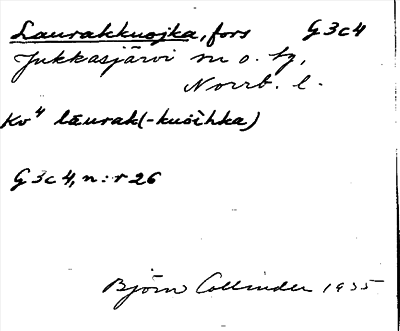 Laurakkuojka, fors G3c4
Jukkasjärvi sn o. tg,
Norrb. l.
Kv⁴ laurak(-kuoihka)
G3c4, n:r 26
Björn Collinder 1935